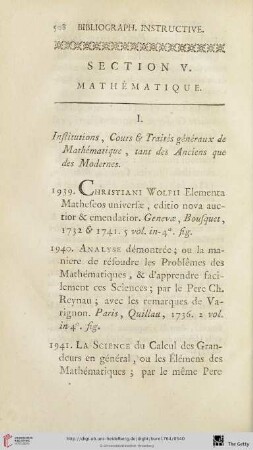 508 BIBLIOGRAPH. INSTRUCTIVE.
SECTION V.
MATHÉMATIQUE.
I.
Institutions, Cours & Traités généraux de
Mathématique, tant des Anciens que
des Modernes.
1939. CHRISTIANI WOLFII Elementa
Matheseos universæ, editio nova auc-
tior & emendatior. Genevæ, Bousquet,
1732 & 1741. 5 vol. in-4°. fig.
1940. ANALYSE démontrée; ou la ma-
niere de résoudre les Problêmes des
Mathématiques, & d'apprendre faci-
lement ces Sciences; par le Pere Ch.
Reynau; avec les remarques de Va-
rignon. Paris, Quillau, 1736. 2 vol.
in-4°. fig.
1941. LA SCIENCE du Calcul des Gran-
deurs en général, ou les Élémens des
Mathématiques; par le même Pere
The Getty